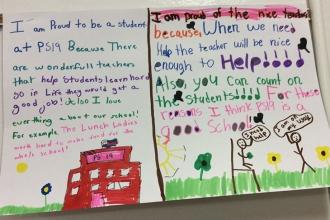 I am Proud to be a student
at PS19 Because There
are wonderfull teachers
that help students learn hard
so in Life they would get a
good job! Also I love
everthing about our school!
For example The Lunch Ladies
work hard to make food for the
whole school!
PS 19
I am proud of the nice teachers
because, When we need
Help the teacher will be nice
enough to Help!!!!
Also, you can count on
the Students!!!! For these
reasons I think PS19 is a
good School!
I need help
I am on my way